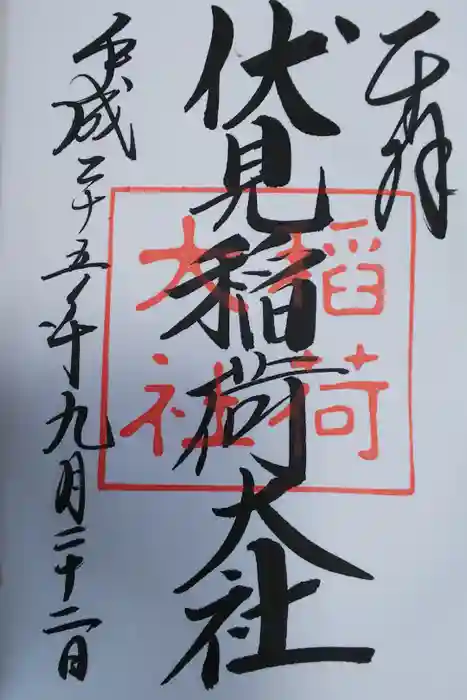 奉拝
伏見稲荷大社
稲荷
大社
平成二十五年九月二十二日